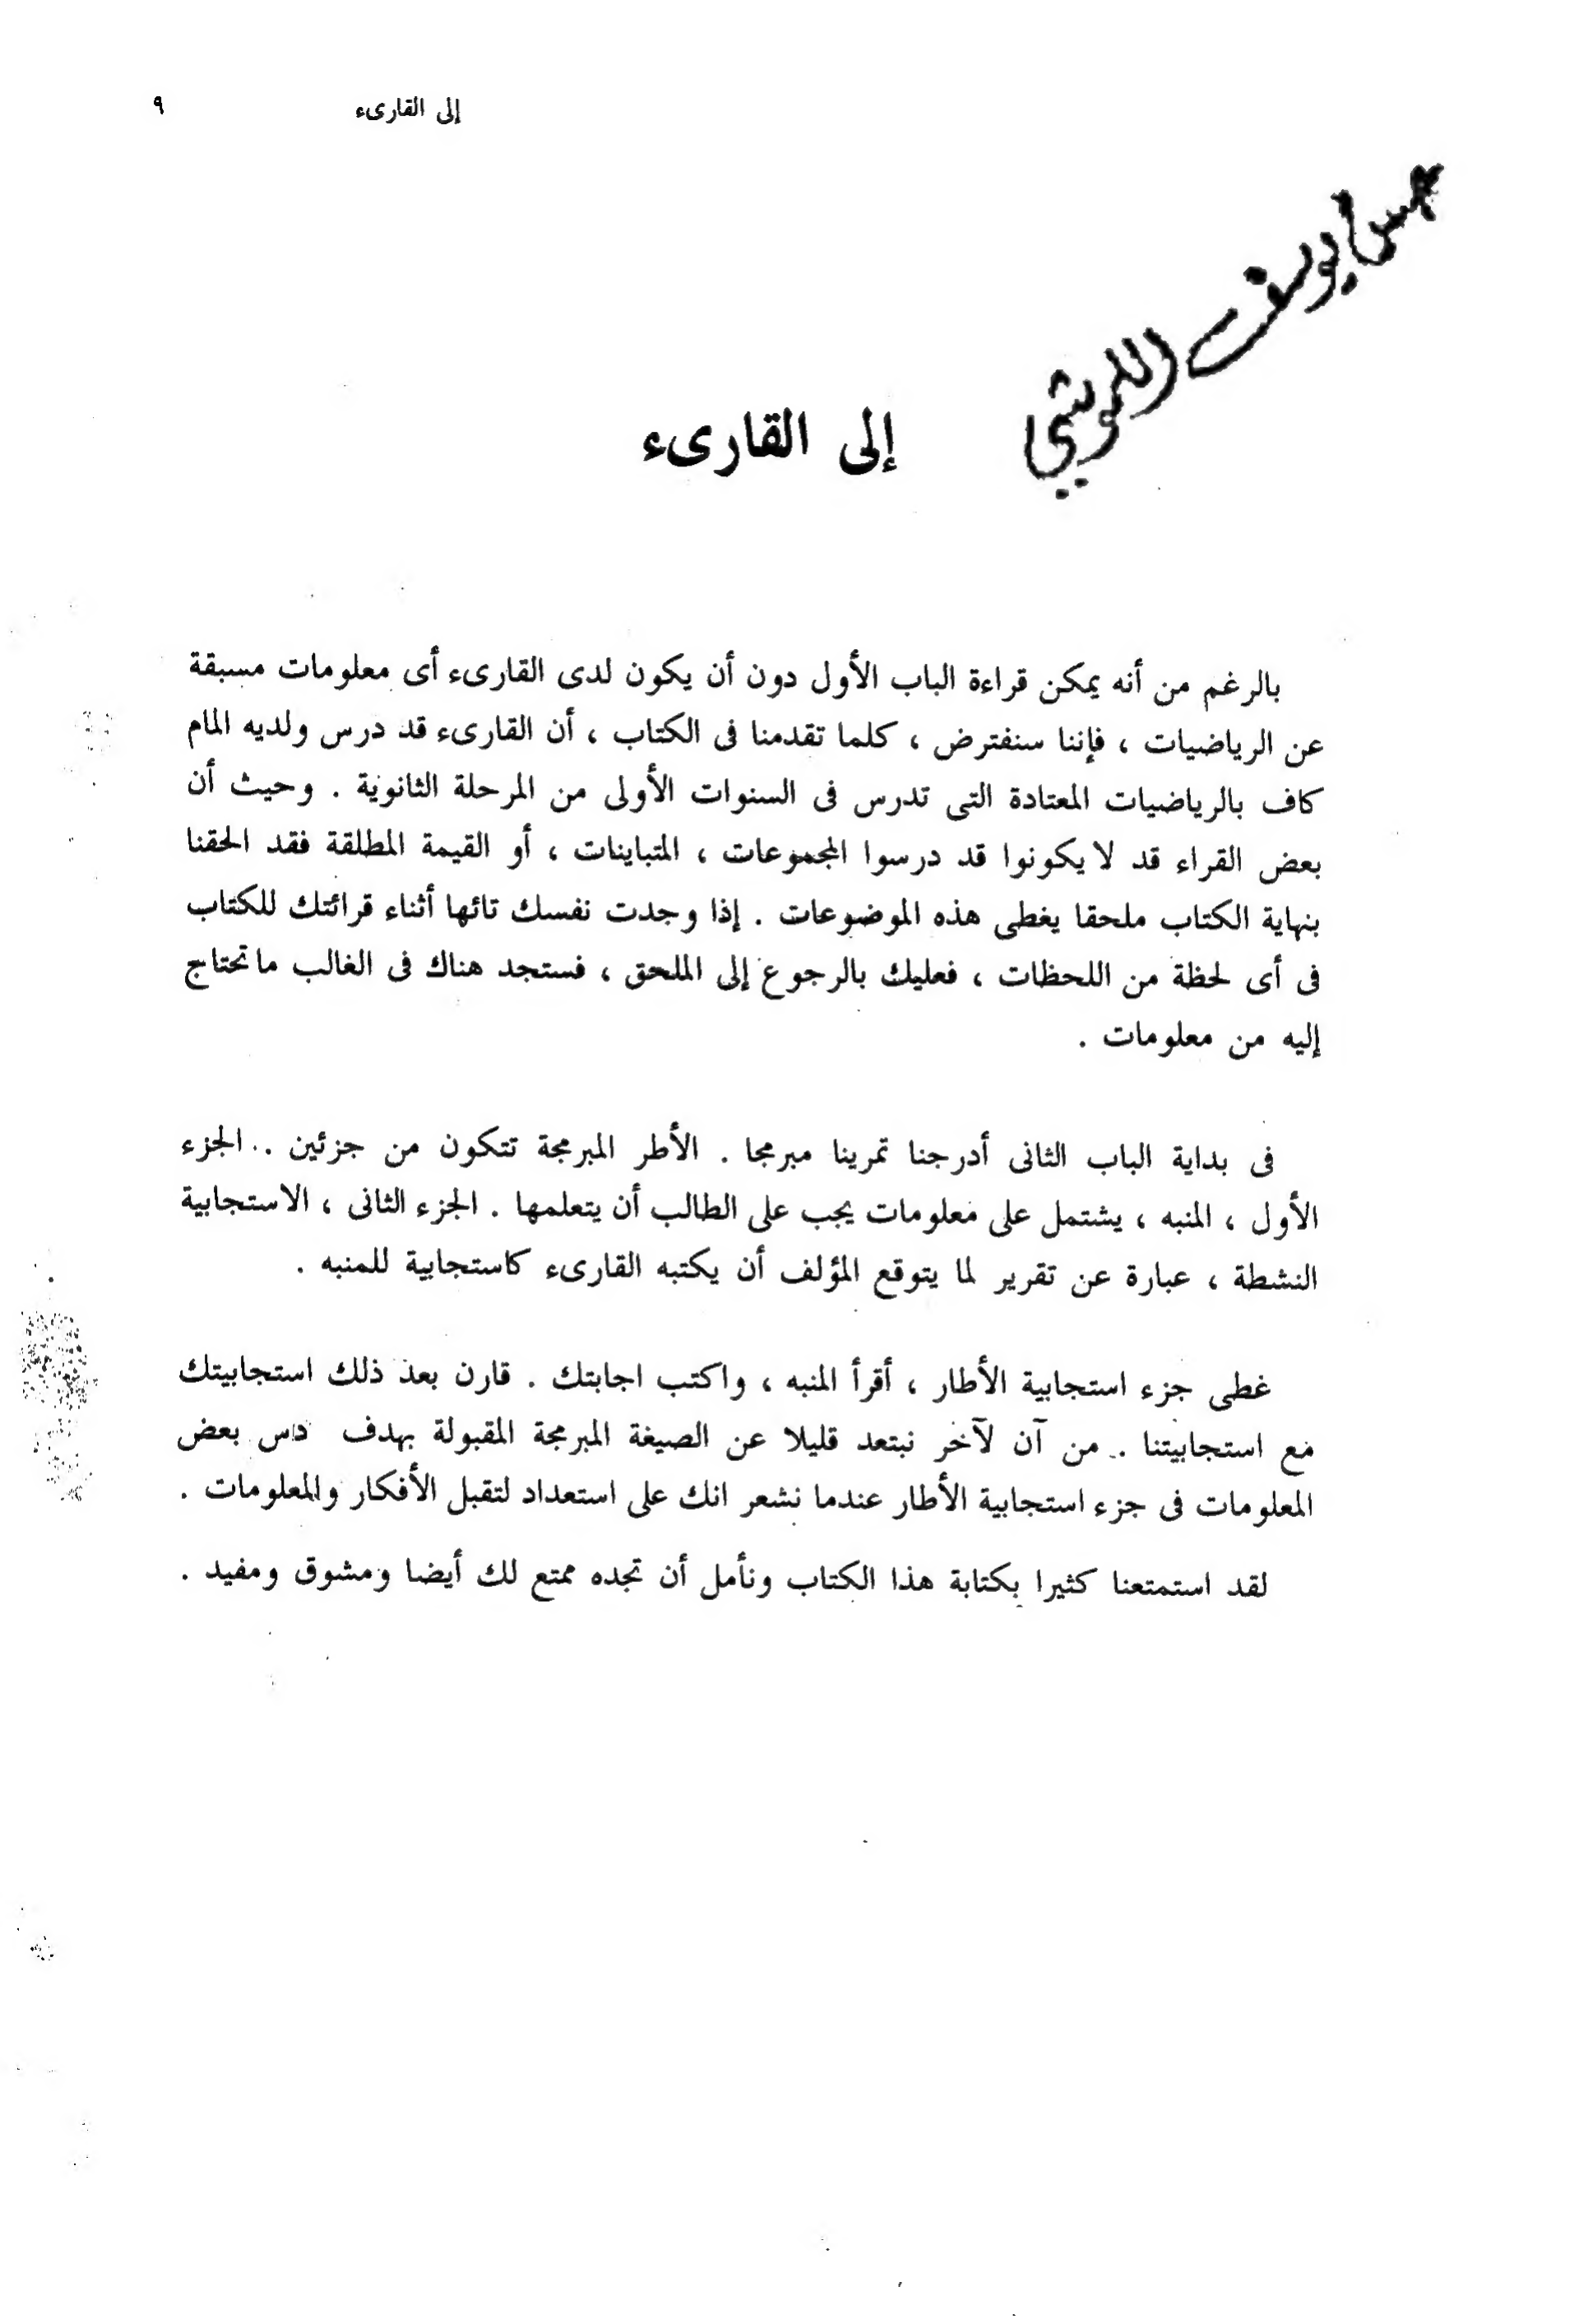 إلى القارىء ٩
يوسف
إلى القارىء
بالرغم من أنه يمكن قراءة الباب الأول دون أن يكون لدى القارىء أى معلومات مسبقة
عن الرياضيات ، فإننا سنفترض ، كلما تقدمنا فى الكتاب ، أن القارىء قد درس ولديه المام
كاف بالرياضيات المعتادة التى تدرس فى السنوات الأولى من المرحلة الثانوية . وحيث أن
بعض القراء قد لا يكونوا قد درسوا المجموعات ، المتباينات ، أو القيمة المطلقة فقد الحقنا
بنهاية الكتاب ملحقا يغطى هذه الموضوعات . إذا وجدت نفسك تائها أثناء قرائتك للكتاب
فى أى لحظة من اللحظات ، فعليك بالرجوع إلى الملحق ، فستجد هناك فى الغالب ما تحتاج
إليه من معلومات .
فى بداية الباب الثانى أدرجنا تمرينا مبرمجا . الأطر المبرمجة تتكون من جزئين . الجزء
الأول ، المنبه ، يشتمل على معلومات يجب على الطالب أن يتعلمها . الجزء الثانى ، الاستجابية
النشطة ، عبارة عن تقرير لما يتوقع المؤلف أن يكتبه القارىء كاستجابية للمنبه .
غطى جزء استجابية الأطار ، أقرأ المنبه ، واكتب اجابتك . قارن بعد ذلك استجابيتك
مع استجابيتنا . من آن لآخر نبتعد قليلا عن الصيغة المبرمجة المقبولة بهدف داس بعض
المعلومات فى جزء استجابية الأطار عندما نشعر انك على استعداد لتقبل الأفكار والمعلومات .
لقد استمتعنا كثيرا بكتابة هذا الكتاب ونأمل أن تجده ممتع لك أيضا ومشوق ومفيد .